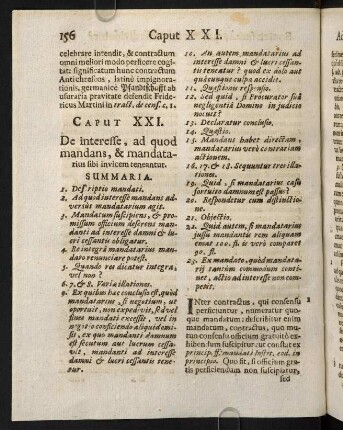 156 Caput XXI.
celebrare intendit, & contractum
omni meliori modo perficere cogitat:
significatum hunc contractum
Antichresios, latinè impignorationis,
germanicè Pfandtschafft ab
usuraria pravitate defendit Fridericus
Martini in tract. de cens. c. 1.
CAPUT XXI.
De interesse, ad quod
mandans, & mandatarius
sibi invicem teneantur.
SUMMARIA.
1. Descriptio mandati.
2. Ad quod interesse mandans adversus
mandatarium agit.
3. Mandatum suscipiens, & promissum
officium deserens mandanti
ad interesse damni & lucri
cessantis obligatur.
4. Re integrâ mandatarius mandato
renunciare potest.
5. Quando res dicatur integra,
vel non?
6. 7. & 8. Variæ illationes.
9. Ex quibus hac conclusio est, quòd
mandatarius, si negotium, ut
oportuit, non expedivit, sed vel
fines mandati excessit, vel in
negotio conficiendo aliquid omisit,
ex quo mandanti damnum
est secutum aut lucrum cessavit,
mandanti ad interesse
damni & lucri cessantis tenetur.
10. An autem mandatarius ad
interesse damni & lucri cessantis
teneatur? quod ex dolo aut
quâcunque culpa accidit.
11. Quæstionis responsio.
12. Sed quid, si Procurator suâ
negligentiâ Domino in judicio
nocuit?
13. Declaratur conclusio.
14. Quæstio.
15. Mandans habet directam,
mandatarius verò contrariam
actionem.
16. 17. & 18. Sequuntur tres illationes.
19. Quid, si mandatarius casu
fortuito damnum est passus?
20. Respondetur cum distinctione.
21. Objectio.
22. Quid autem, si mandatarius
jussu mandantis rem aliquam
emat 100. fl. is verò comparet
90. fl.
23. Ex mandato, quòd mandatarij
tantùm commodum continet,
actio ad interesse non competit.
INter contractus, qui consensu 1
perficiuntur, numeratur quoque
mandatum: describitur enim
mandatum, contractus, quo mutuo
consensu officium gratuitò exhibendum
suscipitur, ut constat ex
principio ff. mandati Instit. eod. in
principio. Quo fit, si officium gratis
perficiendum non suscipiatur,
sed